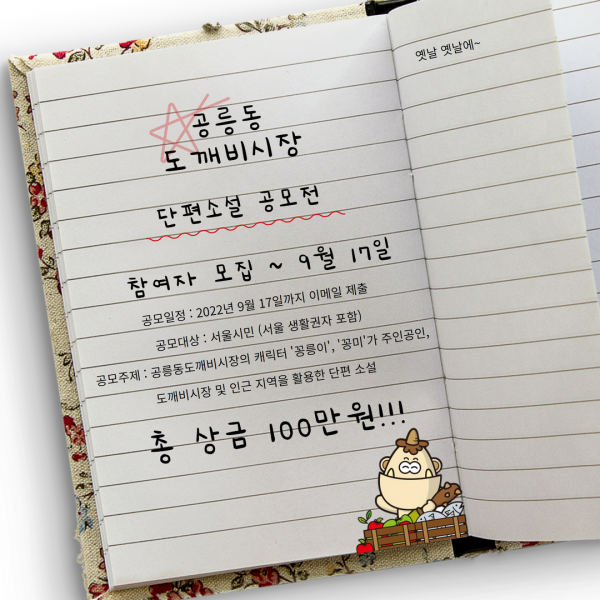 공릉동
도깨비시장
단편소설 공모전
참여자 모집 ~ 9월 17일
공모일정 : 2022년 9월 17일까지 이메일 제출
공모대상 : 서울시민 (서울 생활권자 포함)
공모주제 : 공릉동도깨비시장의 캐릭터 '꽁릉이', '꽁미'가 주인공인,
도깨비시장 및 인근 지역을 활용한 단편 소설
총 상금 100만원!!!
옛날 옛날에~